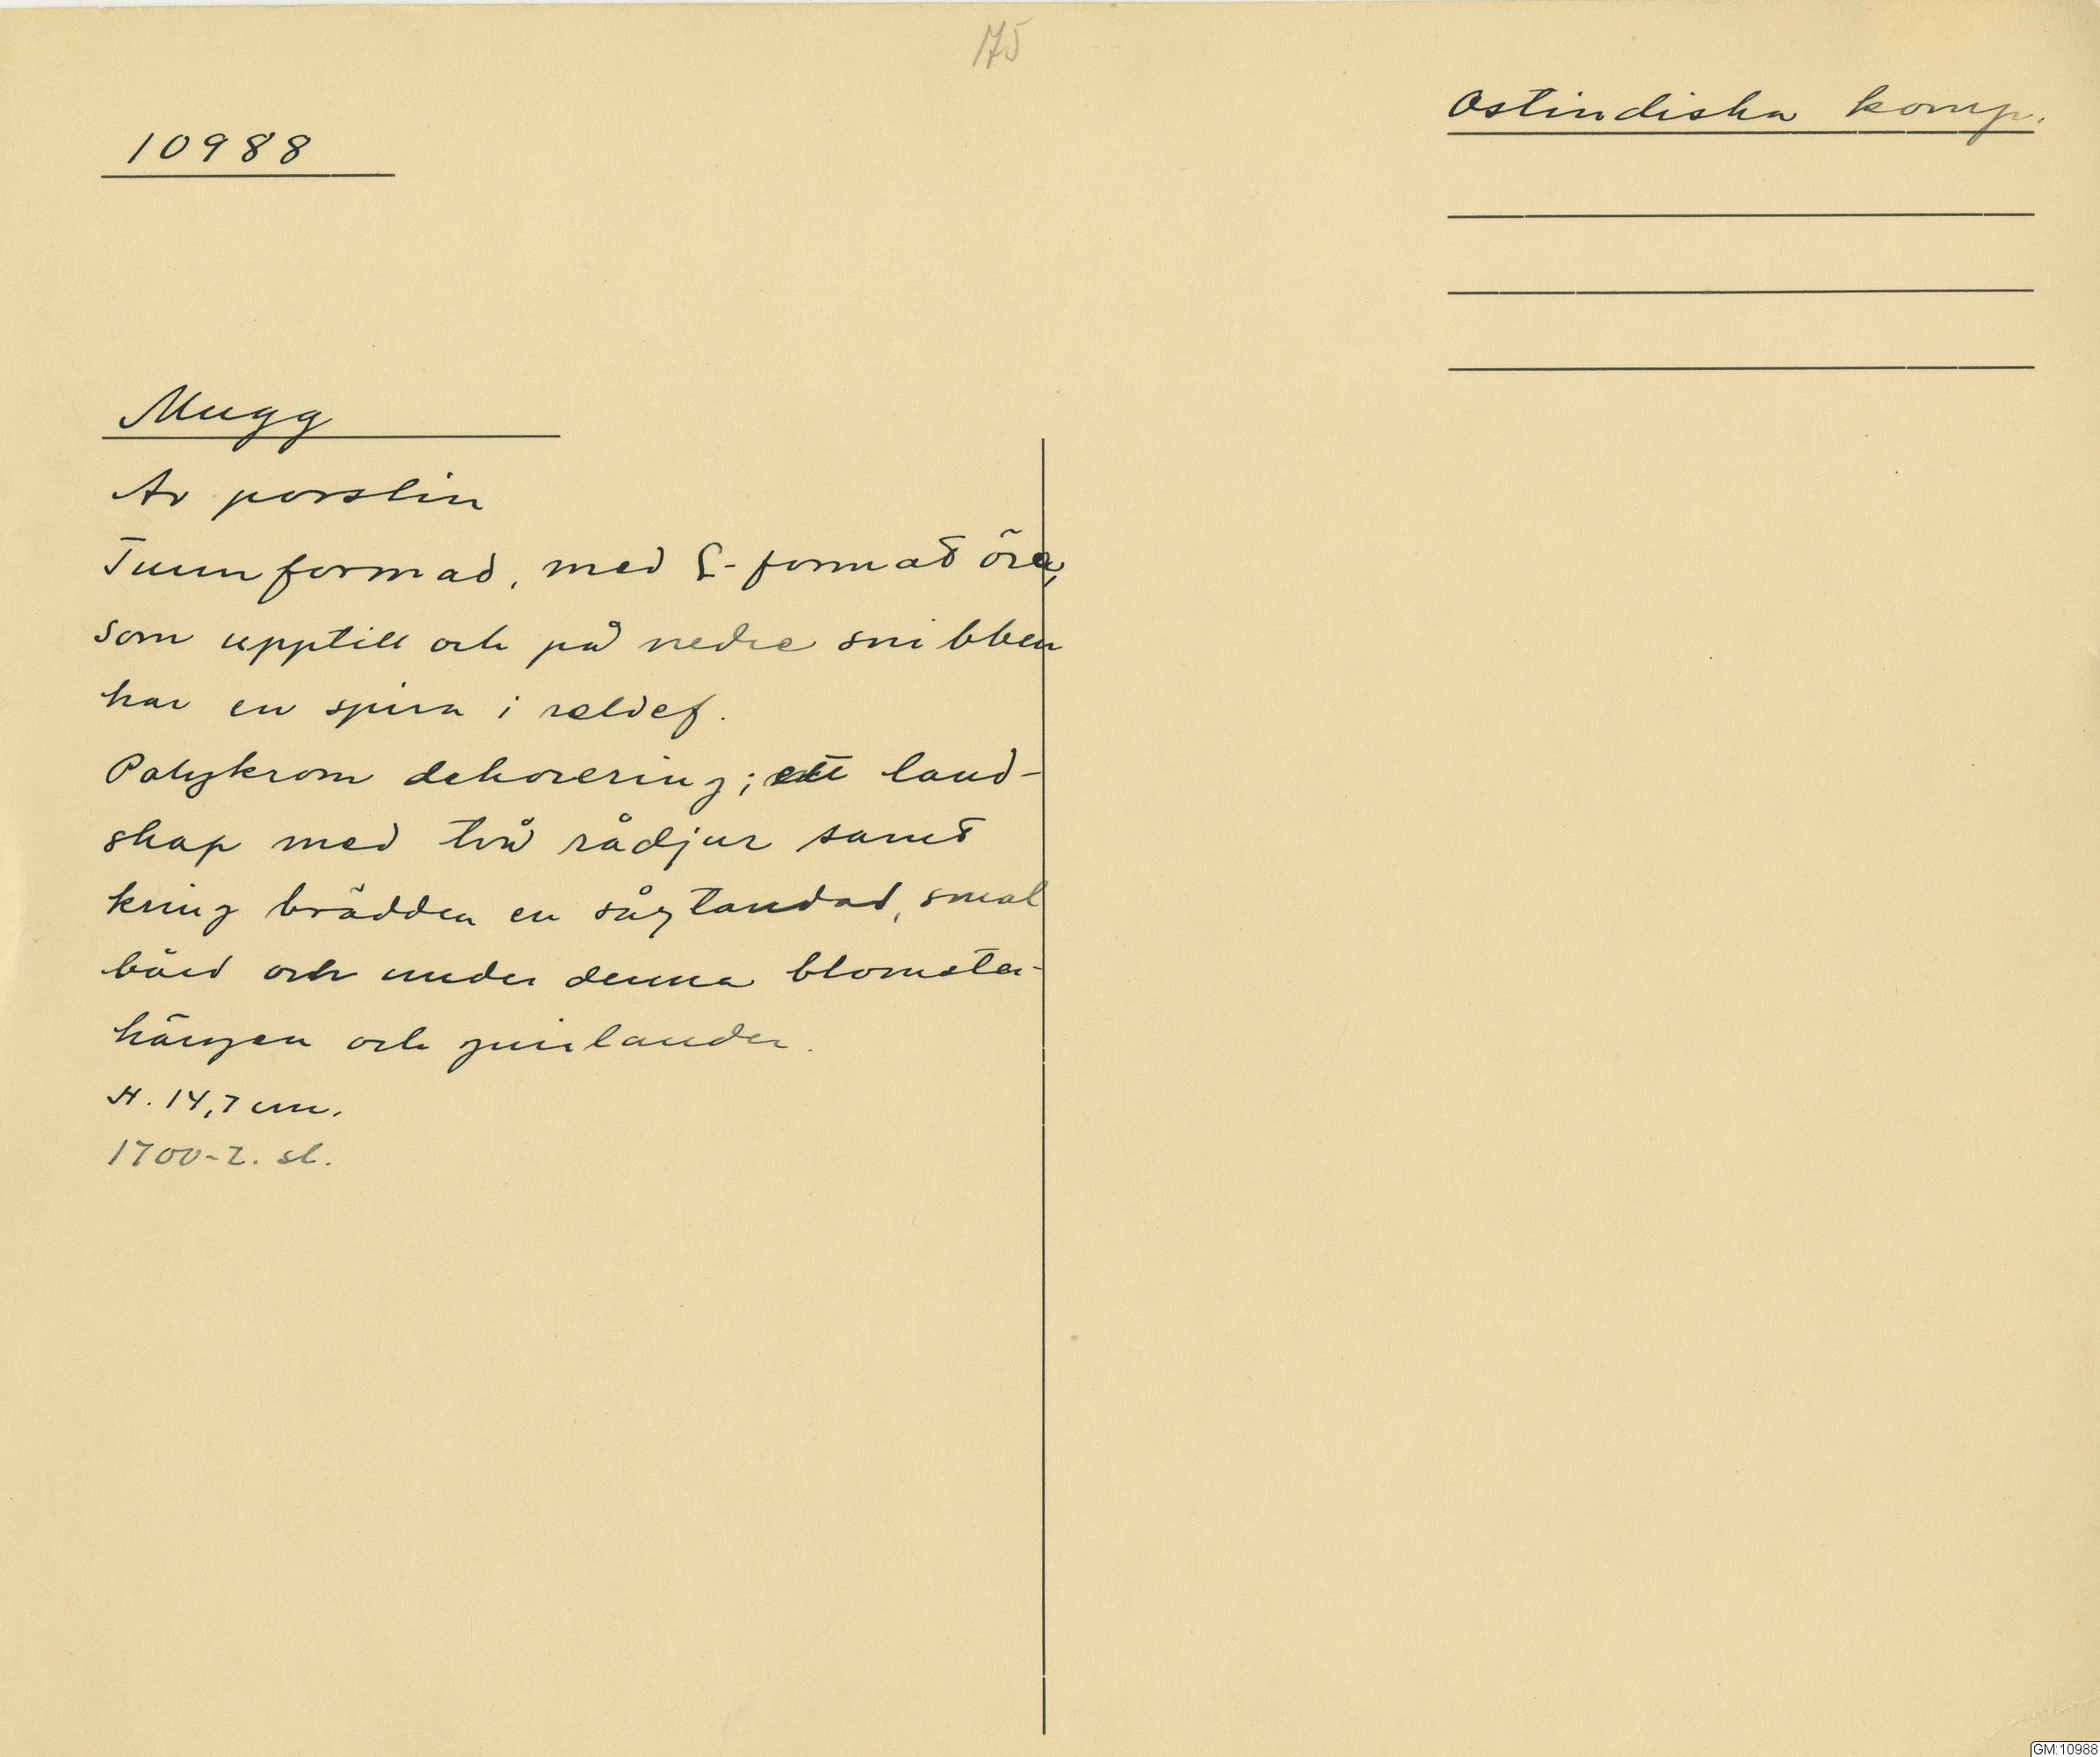 175
Ostindiska komp.
10988
Mugg
Av porslin
Tunnformad, med S-format öra,
som upptill och på nedre snibben
har en spira i relief.
Polykrom dekorering; ett land-
skap med två rådjur samt
kring brädden en sågtandad, smal
bård och under denna blomster-
hängen och guirlander.
H. 14,7 cm.
1700-t. sl.
GM:10988